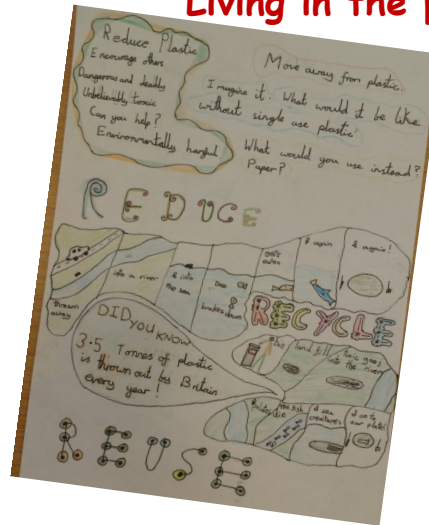 Living in the
Reduce Plastic
Encourage others
Dangerous and deadly
Unbelievably toxic
Can you help?
Environmentally harmful
Move away from plastic.
Imagine it. What would it be like
without single use plastic?
What would you use instead?
Paper?
REDUCE
thrown
away
into a river
& into
the sea
breaks down
gets
eaten
& again
& again!
RECYCLE
DID YOU KNOW
3.5 Tonnes of plastic
is thrown out by Britain
every year!
Bin
land fill
Toxic goes
into the river
die
& sea
creatures
& on to
our plate!
REUSE